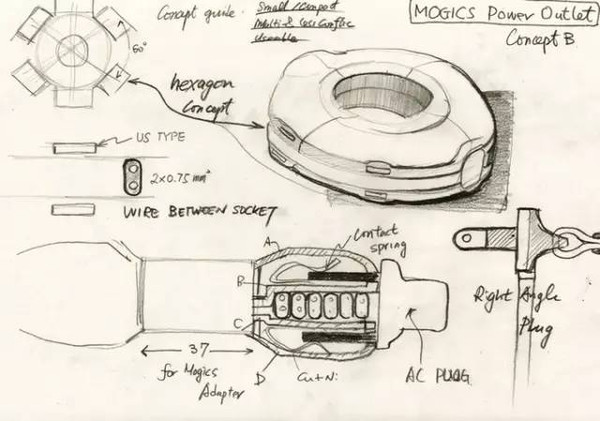 Concept guide.
Small / Compact
Multi & Less Conflic
Useable
MOGICS Power Outlet
Concept B
60°
hexagon
Concept
US TYPE
2x0.75 mm²
WIRE BETWEEN SOCKET
A
Contact
spring
B
C
D
Cu+Ni
37
for Mogics
Adapter
AC PLUG
Right Angle
Plug